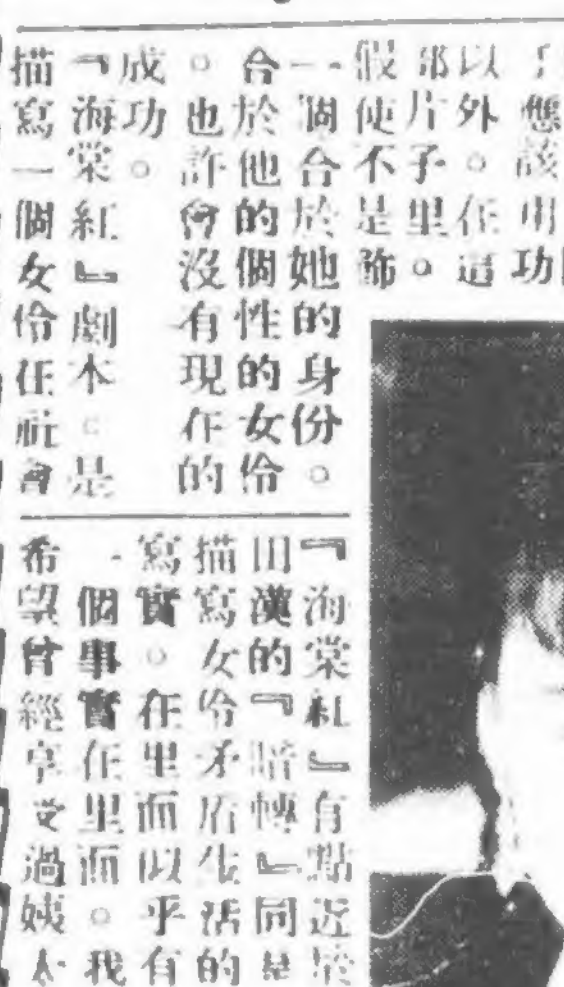 態該用功
以外。在這
部片子里。
假使不是飾
一個合於她的身份。
合於他的個性的女伶
。也許會沒有現在的
成功。
『海棠紅』劇本。是
描寫一個女伶在社會
『海棠紅』有點近於
田漢的『暗轉』同是
描寫女伶矛盾生活的
寫實。在里面似乎有
一個事實在里面。我
希望曾經享受過姨太